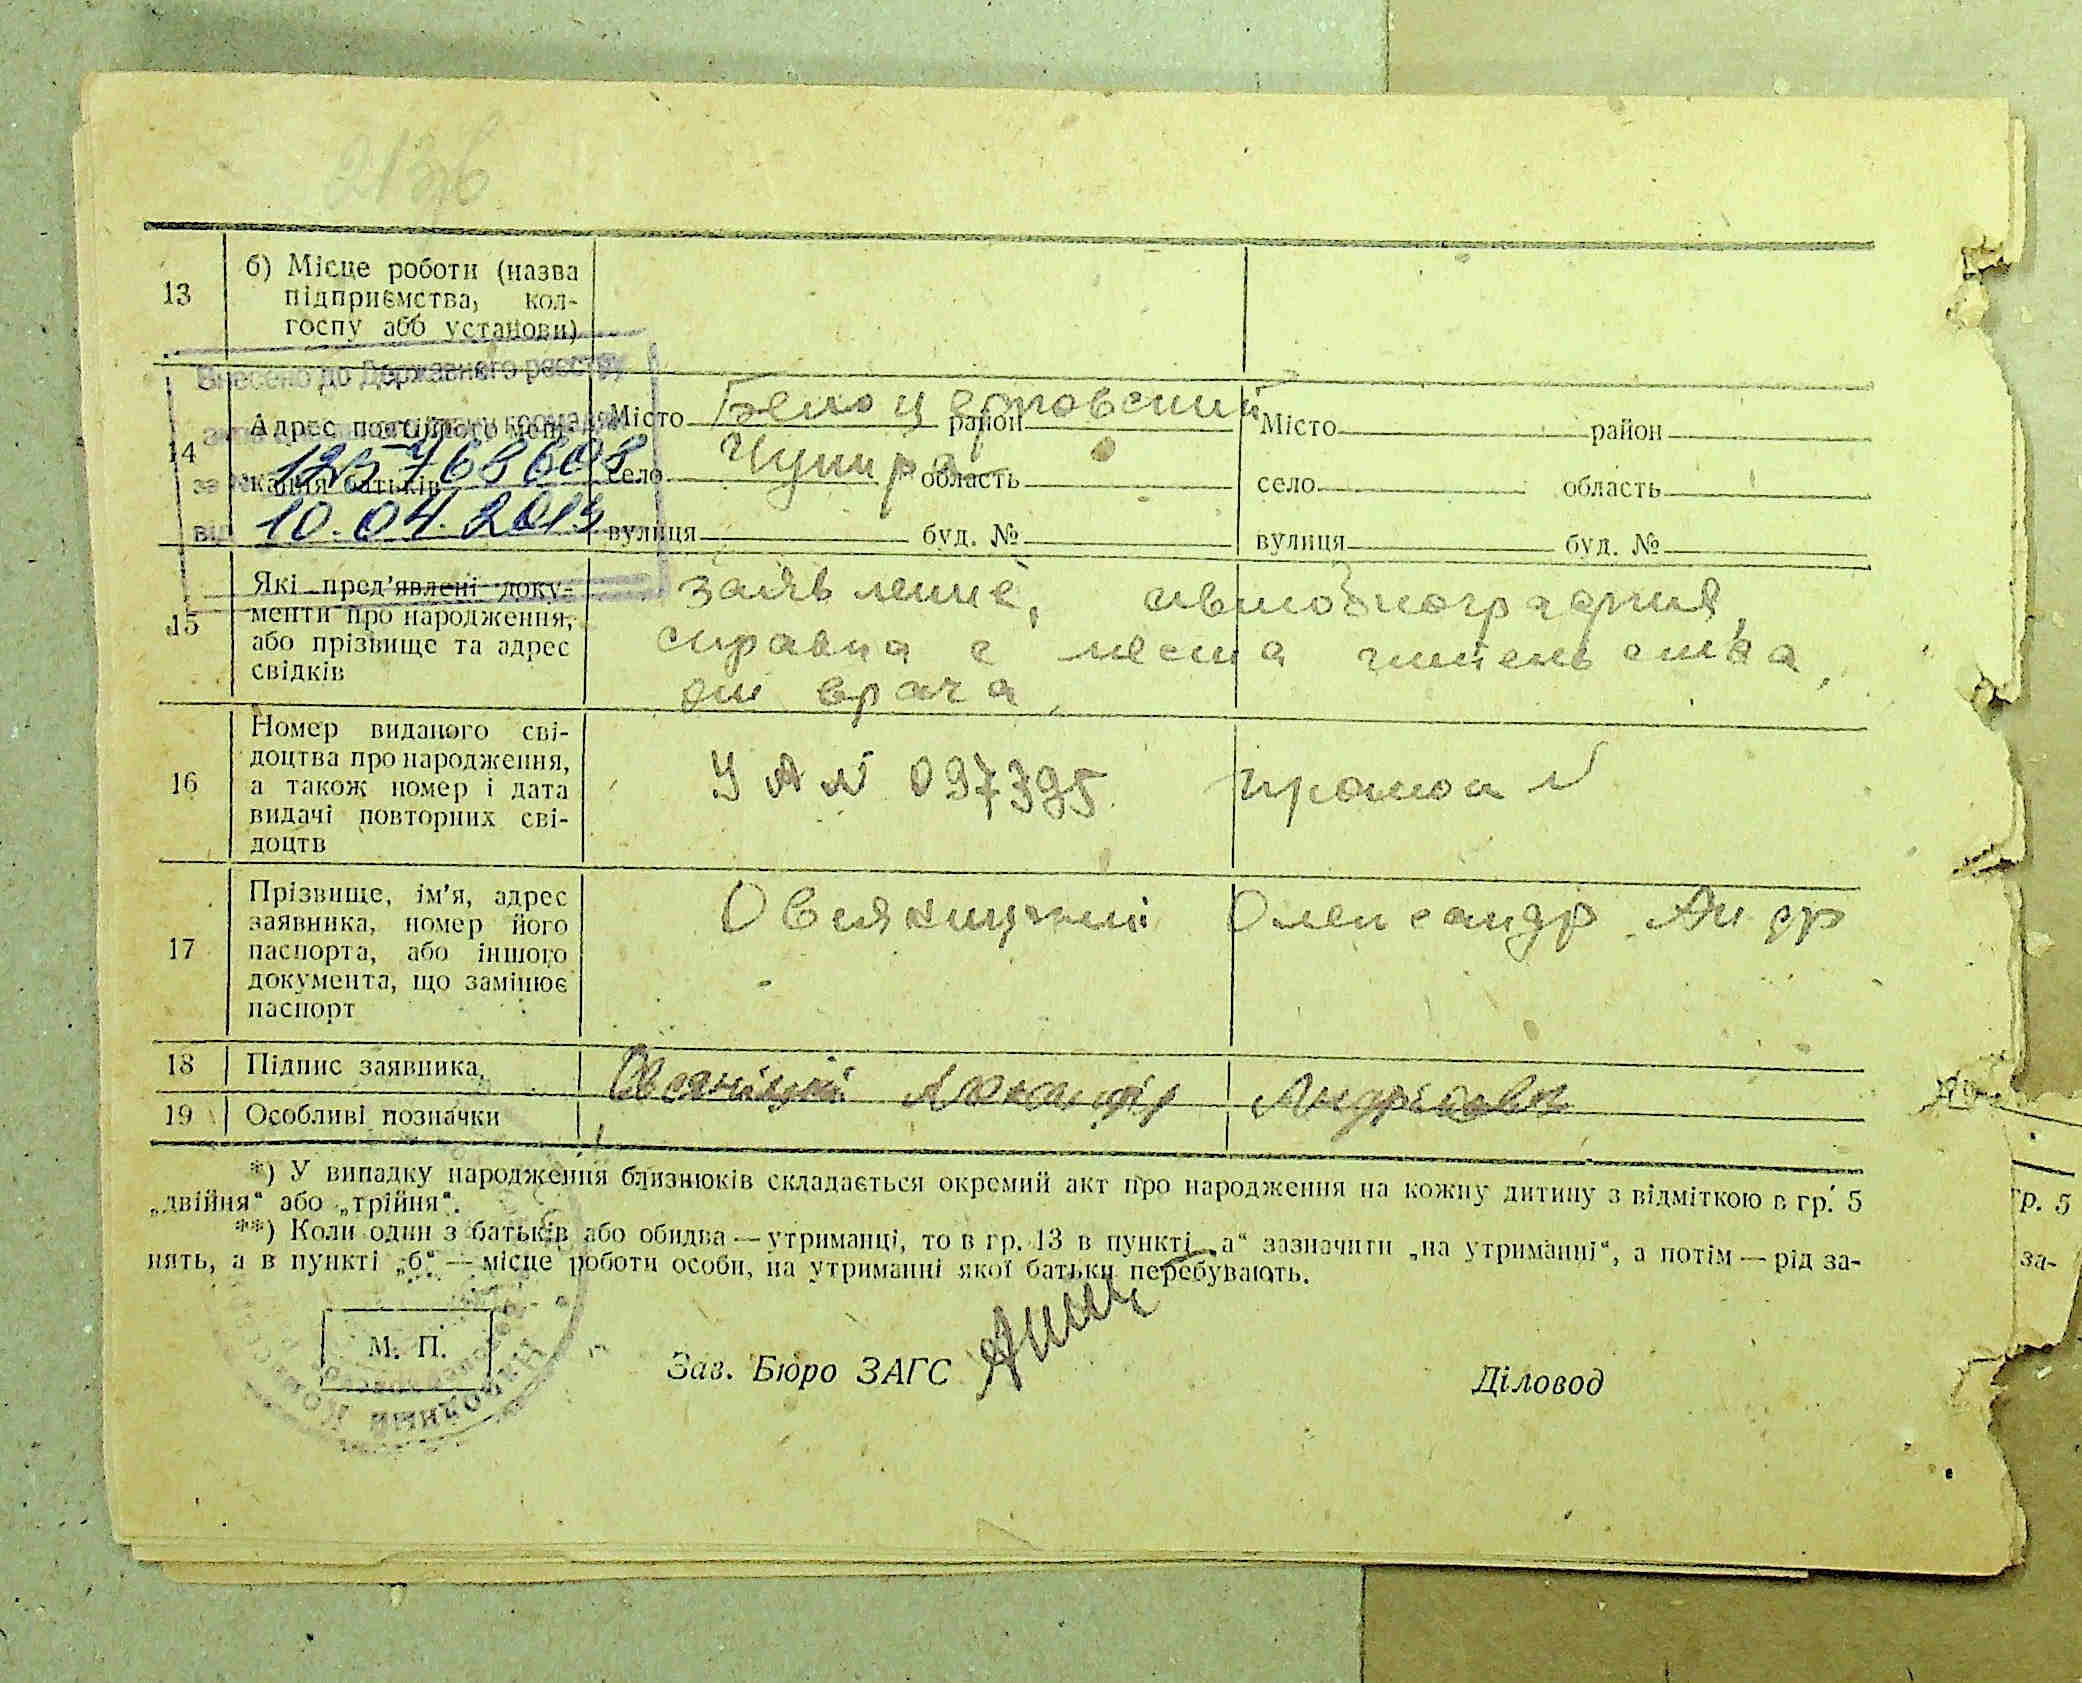 213б
13
б) Місце роботи (назва
підприємства, кол-
госпу або установи)
Внесено до Державного реєстру
14
Адрес постійного меш-
кання батьків
за
12576 8608
від 10.04.2015
Місто Белоцерковский район
село Чупира область
вулиця буд. №
Місто район
село область
вулиця буд. №
15
Які пред'явлені доку-
менти про народження,
або прізвище та адрес
свідків
заявление, автобиография,
справка с места жительства,
от врача,
16
Номер виданого сві-
доцтва про народження,
а також номер і дата
видачі повторних сві-
доцтв
УА № 097395
17
Прізвище, ім'я, адрес
заявника, номер його
паспорта, або іншого
документа, що замінює
паспорт
Овсяницкий Олександр Андр
18
Підпис заявника
19
Особливі позначки
*) У випадку народження близнюків складається окремий акт про народження на кожну дитину з відміткою в гр. 5
„двійня“ або „трійня“.
**) Коли один з батьків або обидва — утриманці, то в гр. 13 в пункті „а“ зазначити „на утриманні“, а потім — рід за-
нять, а в пункті „б“ — місце роботи особи, на утриманні якої батьки перебувають.
гр. 5
за-
М. П.
Зав. Бюро ЗАГС
Діловод